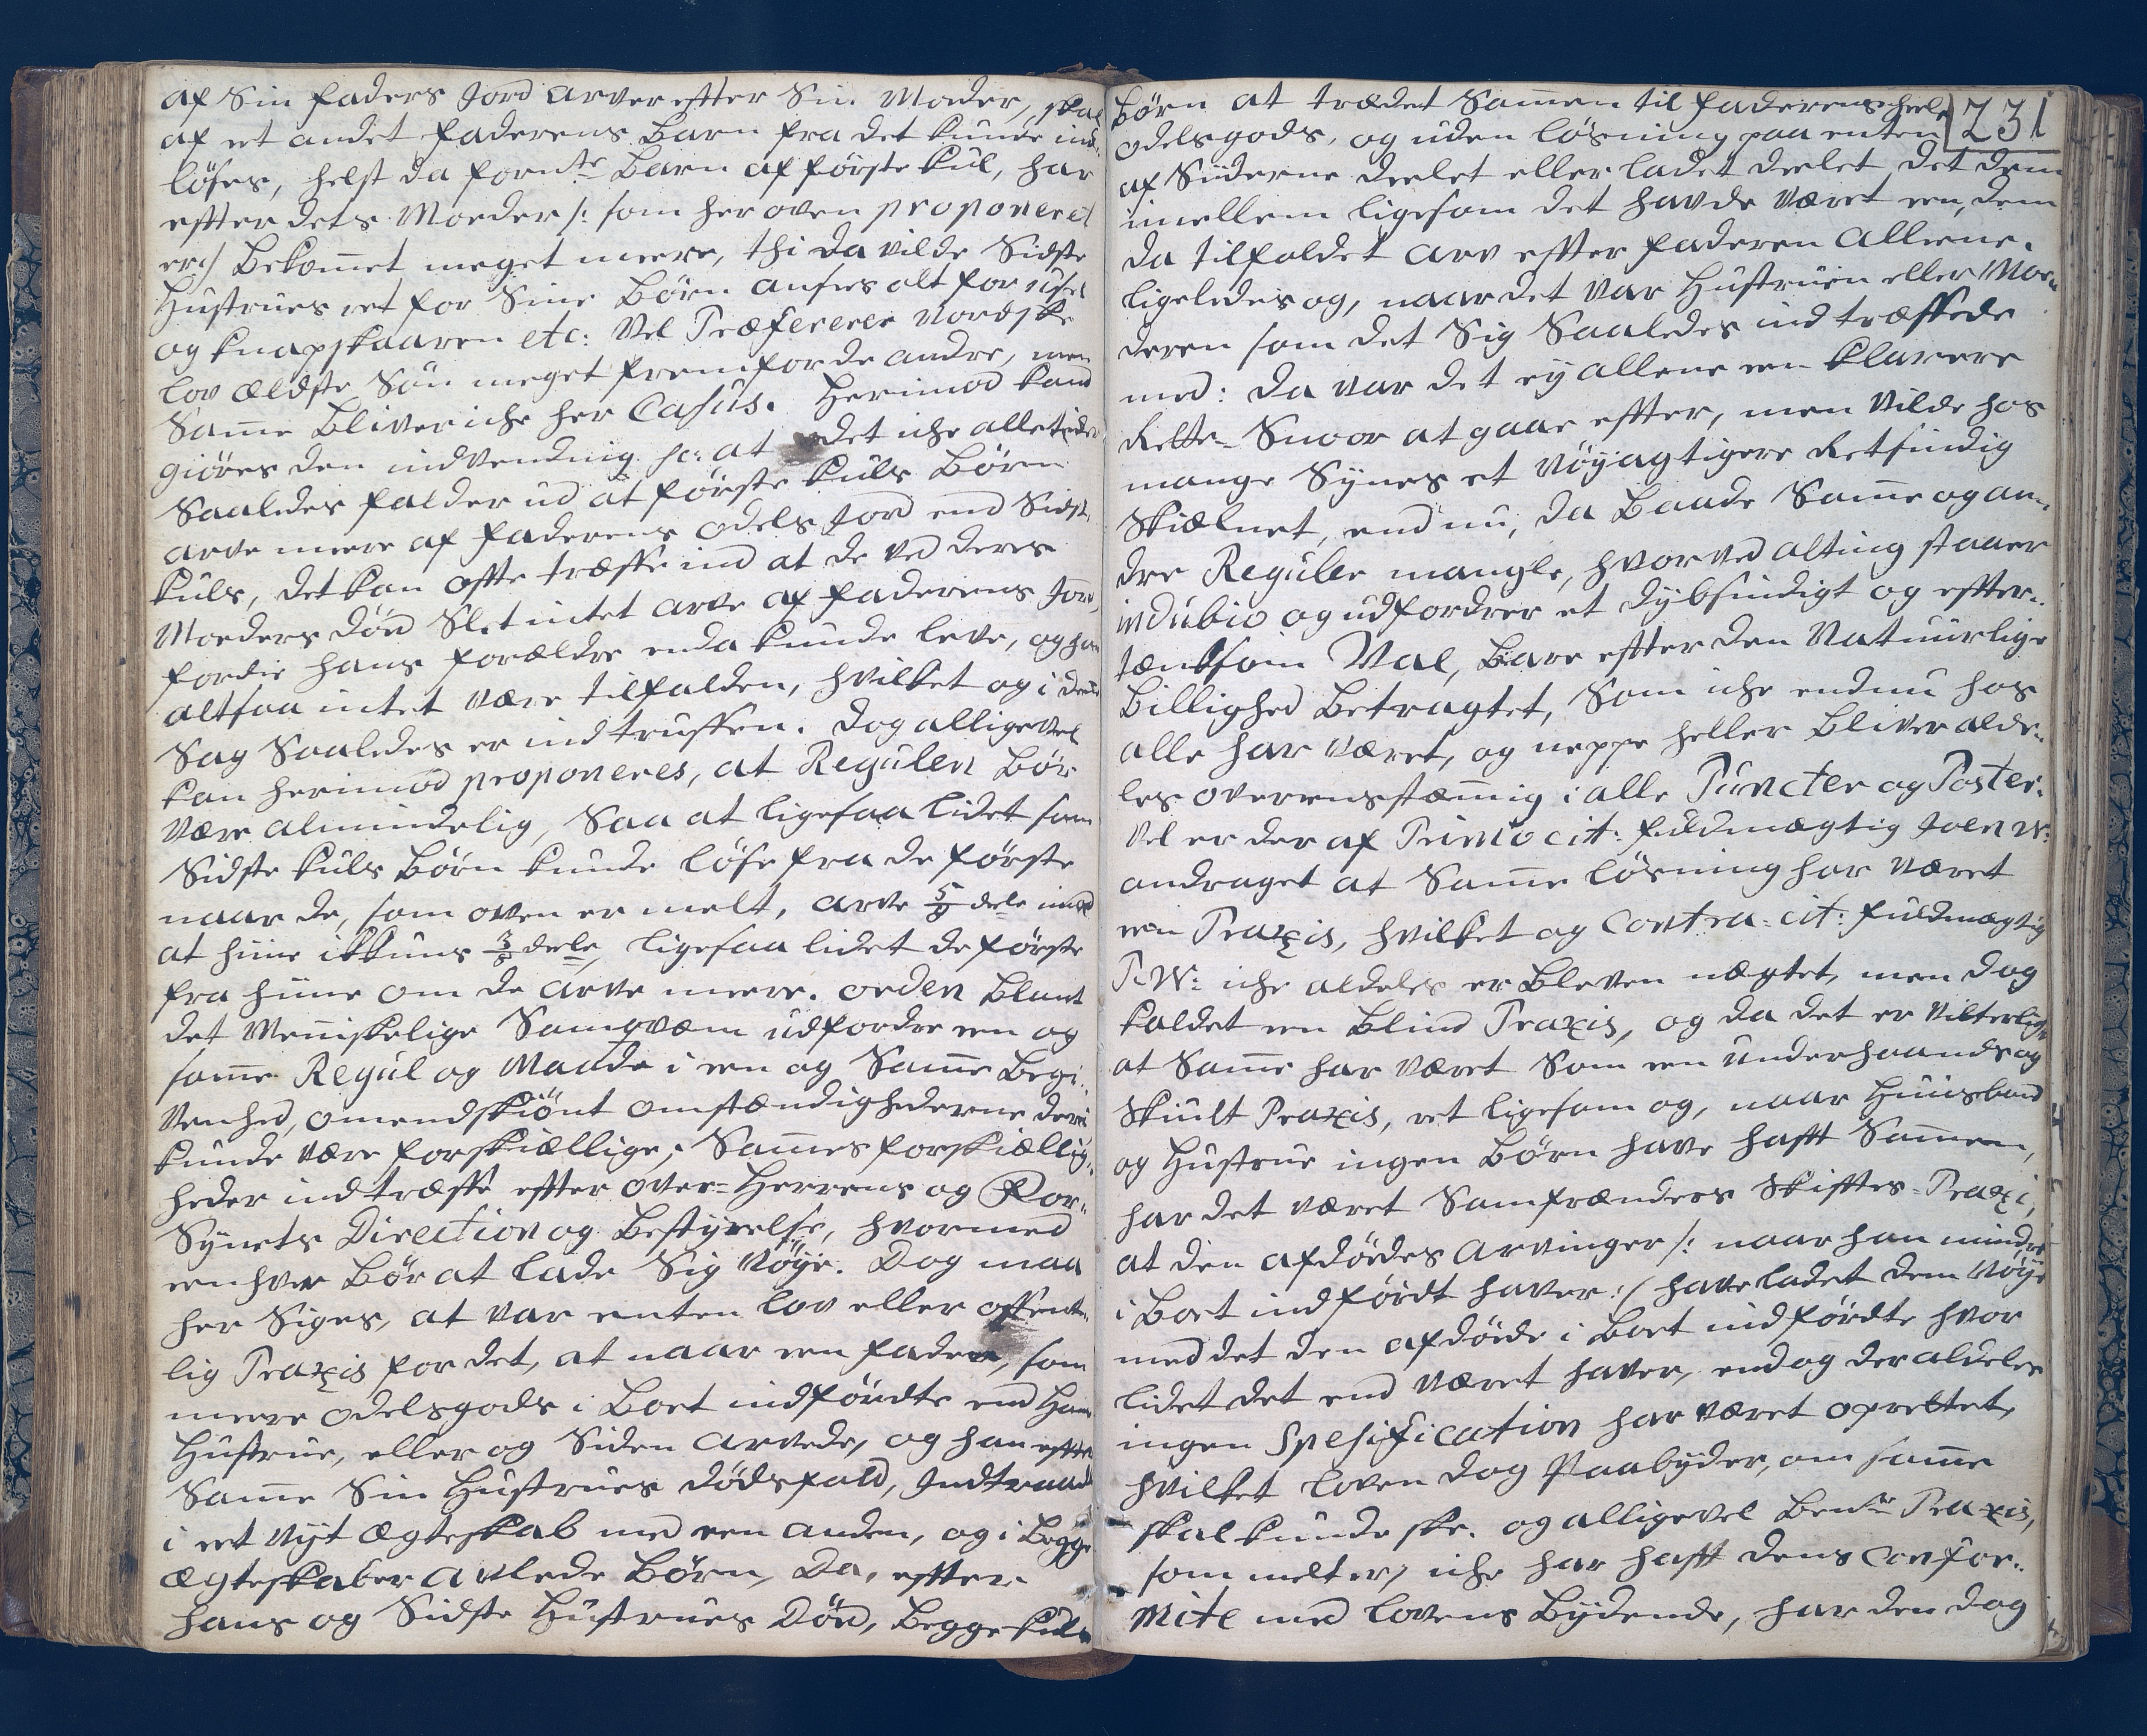 af Sin faders Jord arver efter Sin Moder, skal
af et andet faderens Barn fra det kunde ind-
løses, helst da fornte Barn af første kul, har
efter dets Moeder /: som her oven proponeret
er:/ Bekom̅et meget meere, thi da vilde Sidste
Hustrues ret for Sine Børn ansees alt for ussel
og knapskaaren etc: Vel Præfererer Nordske
lov Ældste Søn meget frem for de andre, men
Sam̅e Bliver iche her Casus. Herimod kand
giøres den indvending sc: at det iche alletider
Saaledes falder ud at første kuls Børn
arve meere af faderens odels Jord end Sidste
kuls, det kan ofte træffe ind at de ved deres
Moeders død Slet intet arve af faderens Jord,
fordie hans forældre enda kunde leve, og ham
altsaa intet være tilfalden, hvilket og i denne
Sag Saaledes er indtruffen. Dog alligevel
kan herimod proponeres, at Regulen Bør
være almindelig, Saa at ligesaa lidet som
Sidste kuls Børn kunde løse fra de første
naar de, som oven er melt, arve 5/8 dele imod
at hine ikkuns 3/8 dele, ligesaa lidet de første
fra hiine om de arve meere. orden Blant
det Menniskelige Samqvæm udfordrer een og
sam̅e Regul og Maade i een og Sam̅e Begi-
venhed, omendskiönt omstændighederne deri
kunde være forskiællige; Sam̅es forskiællig-
heder indtræffe efter over-Herrens og For-
Synets Direction og Bestyrelse, hvormed
eenhver Bør at lade Sig Nøye. Dog maa
her Siges, at var enten lov eller offent-
lig Praxis for det, at naar een fader, som
meere odelsgods i Boet indførdte end Hans
Hustrue, eller og Siden arvede, og han efter
Sam̅e Sin Hustrues dødsfald, Indtraad
i et Nyt Ægteskab med een anden, og i Begge
Ægteskaber avlede Børn, Da, efter
hans og Sidste Hustrues Død, Begge kuls
231
Børn at trædet Sam̅en til faderens heele
odelsgods, og uden løsning paa enten
af Siiderne deelet eller ladet deelet det dem
imellem ligesom det havde været een, dem
da tilfaldet arv efter faderen alleene.
ligeledes og, naar det var Hustruen eller Moe-
deren som det Sig Saaledes indtræffede
med: da var det ey allene een klarere
Rette-Snoor at gaae efter, men vilde hos
mange Synes et Nøyagtigere Retsindig
Skiælnet, end nu, da Baade Sam̅e og an-
dre Reguler mangle, hvorved alting staaer
in dubio og udfordrer et dybsindigt og efter-
tænksom Val, Bare efter den Natuurlige
Billighed Betragtet, Som iche endnu hos
alle har været, og neppe heller Bliver alde-
les overeensstæm̅ig i alle Puncter og Poster.
Vel er der af Primo cit: fuldmægtig Joen N:
andraget at Sam̅e løsning har været
een Praxis, hvilket og Contra-cit: fuldmægtig
P. W: iche aldeles er Bleven nægtet, men dog
kaldet een Blind Praxis, og da det er vitterligt
at Sam̅e har været Som een underhaands og
Skiult Praxis, ret ligesom og, naar Huusbond
og Hustrue ingen Børn have hafft Sam̅en,
har det været Samfrænders Skifftes-Praxi,
at den afdødes Arvinger /: naar han mindre
i Boet indførdt haver :/ have ladet dem Nøye
med det den afdøde i Boet indførdte hvor
lidet det end været haver, endog der aldeles
ingen Spesification har været oprettet,
hvilket loven dog Paabyder, om sam̅e
skal kunde ske. og alligevel Bente Praxis,
som melt er, iche har hafft dens Confor-
mite med lovens Bydende, har den dog